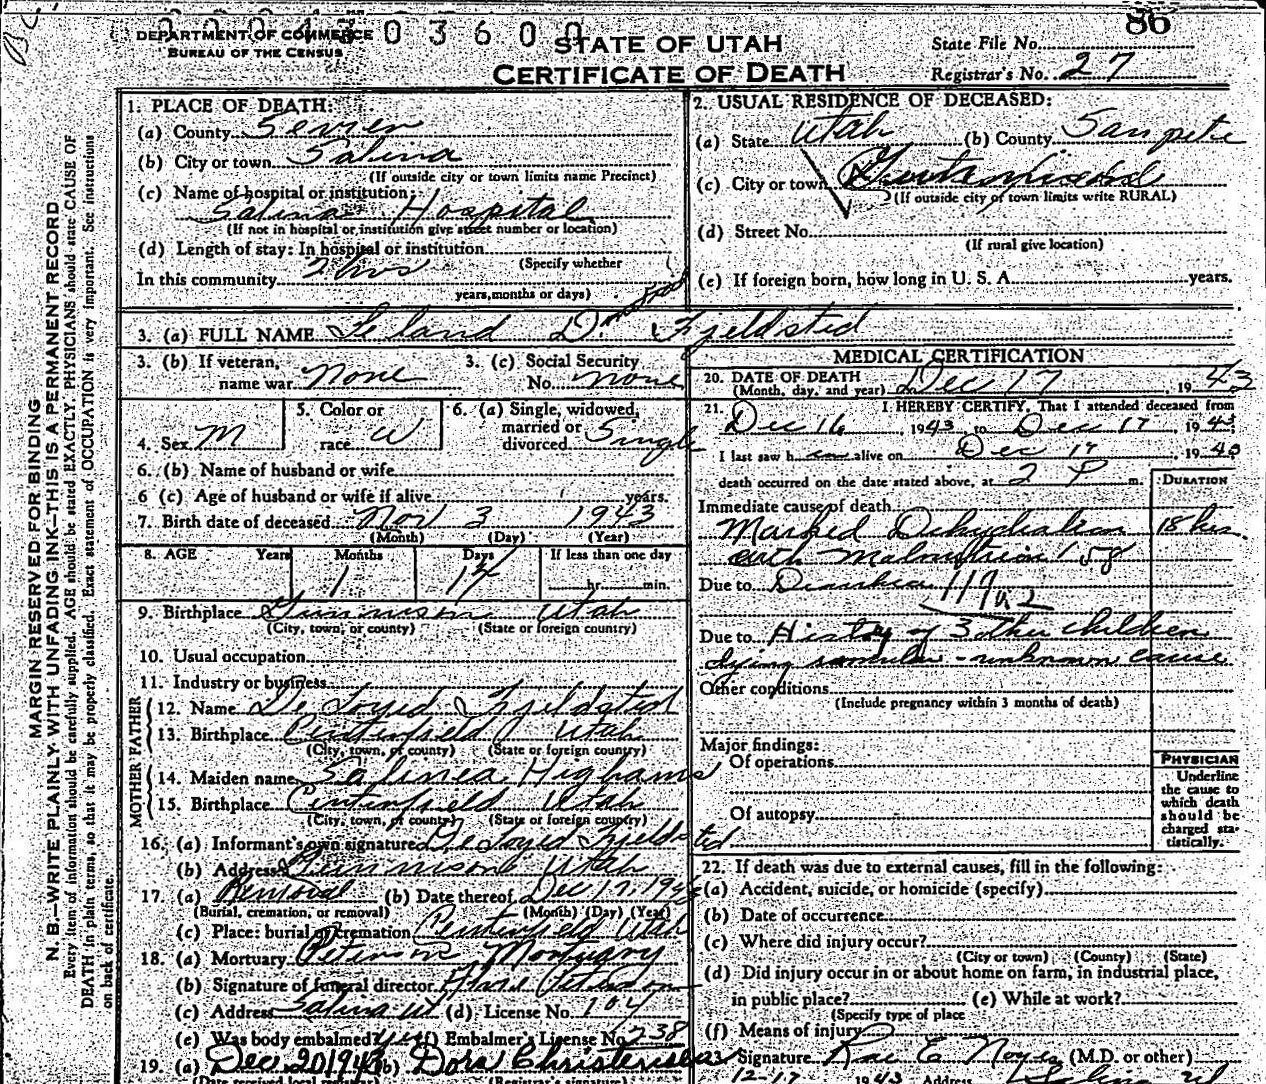 86
DEPARTMENT OF COMMERCE
BUREAU OF THE CENSUS
STATE OF UTAH
CERTIFICATE OF DEATH
State File No.
Registrar's No. 27
MARGIN RESERVED FOR BINDING
N. B.—WRITE PLAINLY WITH UNFADING INK—THIS IS A PERMANENT RECORD
Every item of information should be carefully supplied. AGE should be stated EXACTLY. PHYSICIANS should state CAUSE OF
DEATH in plain terms, so that it may be properly classified. Exact statement of OCCUPATION is very important. See instructions
on back of certificate.
1. PLACE OF DEATH:
(a) County Sevier
(b) City or town Salina
(If outside city or town limits name Precinct)
(c) Name of hospital or institution:
Salina Hospital
(If not in hospital or institution give street number or location)
(d) Length of stay: In hospital or institution
(Specify whether
In this community 2 hrs
years, months or days)
2. USUAL RESIDENCE OF DECEASED:
(a) State Utah (b) County Sanpete
(c) City or town
(If outside city or town limits write RURAL)
(d) Street No.
(If rural give location)
(e) If foreign born, how long in U. S. A. years.
3. (a) FULL NAME Leland D. Fjeldsted
3. (b) If veteran, name war None
3. (c) Social Security No. none
4. Sex M
5. Color or race W
6. (a) Single, widowed, married or divorced Single
6. (b) Name of husband or wife
6 (c) Age of husband or wife if alive years.
7. Birth date of deceased Nov 3 1943
(Month) (Day) (Year)
8. AGE Years Months Days If less than one day
1 14 hr. min.
9. Birthplace Gunnison Utah
(City, town, or county) (State or foreign country)
10. Usual occupation
11. Industry or business
FATHER
12. Name De Loyed Fjeldsted
13. Birthplace Centerfield Utah
(City, town, or county) (State or foreign country)
MOTHER
14. Maiden name Highams
15. Birthplace Centerfield Utah
(City, town, or county) (State or foreign country)
16. (a) Informant's own signature De Loyed Fjeldsted
(b) Address Gunnison Utah
17. (a) Removal (b) Date thereof Dec 17, 1943
(Burial, cremation, or removal) (Month) (Day) (Year)
(c) Place: burial or cremation Centerfield Utah
18. (a) Mortuary Peterson Mortuary
(b) Signature of funeral director Peterson
(c) Address Salina Ut (d) License No. 104
(e) Was body embalmed? yes (f) Embalmer's License No. 238
19. (a) Dec 20 1943 (b) Dora Christensen
(Date received local registrar) (Registrar's signature)
MEDICAL CERTIFICATION
20. DATE OF DEATH
(Month, day, and year) Dec 17, 1943
21. I HEREBY CERTIFY, That I attended deceased from
Dec 16, 1943 to Dec 17, 1943
I last saw h im alive on Dec 17, 1943
death occurred on the date stated above, at 2 P m.
DURATION
Immediate cause of death
Marked Dehydration 18 hrs.
with Malnutrition 158
Due to Diarrhea 119a2
Due to History of 3 other children
dying similar - unknown cause
Other conditions
(Include pregnancy within 3 months of death)
Major findings:
Of operations
Of autopsy
PHYSICIAN
Underline
the cause to
which death
should be
charged sta-
tistically.
22. If death was due to external causes, fill in the following:
(a) Accident, suicide, or homicide (specify)
(b) Date of occurrence
(c) Where did injury occur?
(City or town) (County) (State)
(d) Did injury occur in or about home on farm, in industrial place,
in public place? (e) While at work?
(Specify type of place
(f) Means of injury
23. Signature Rae E Noyes (M.D. or other)
12-17 1943 Address Salina